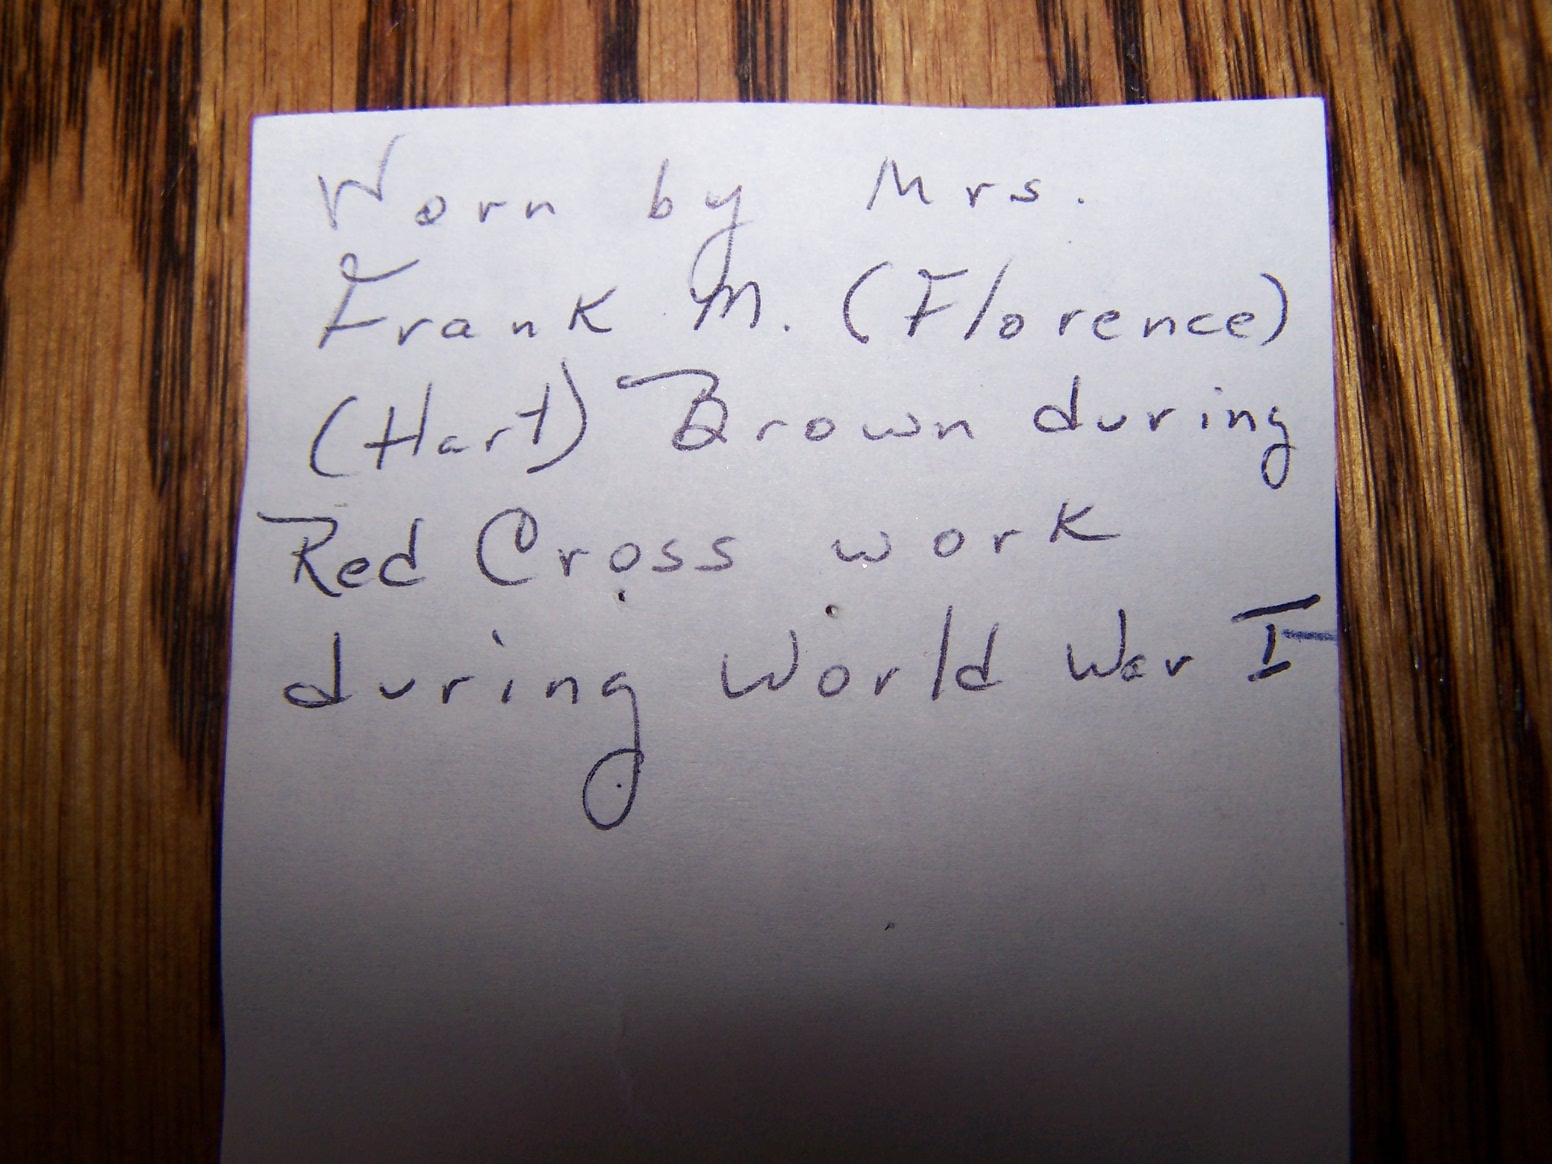 Worn by Mrs.
Frank M. (Florence)
(Hart) Brown during
Red Cross work
during World War I